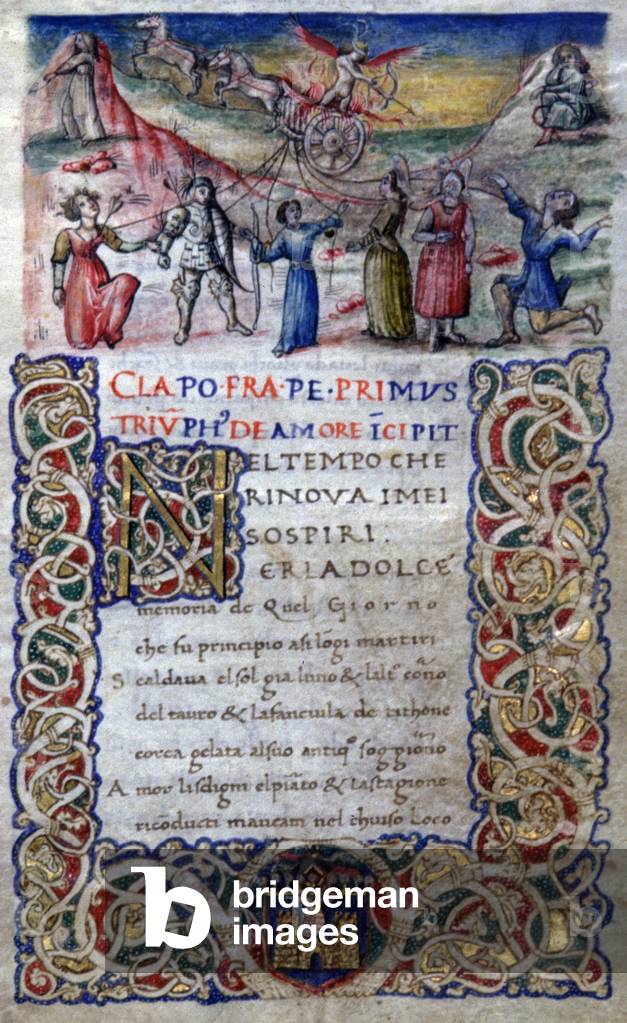 CLA·PO·FRA·PE·PRIMUS
TRIŪPH⁹ DE AMORE ĪCIPIT·
NEL TEMPO CHE
RINOVA I MEI
SOSPIRI:
ER LA DOLCE
memoria de Quel Giorno
che fu principio a si lōgi martiri
S caldaua el sol gia luno &
del tauro & la fanciula de tithone
corea gelata al suo antiqº soggiorno
A mor li sdigni el piāto & la stagione
ricōducti maueam nel chiuso Loco
b
bridgeman
images